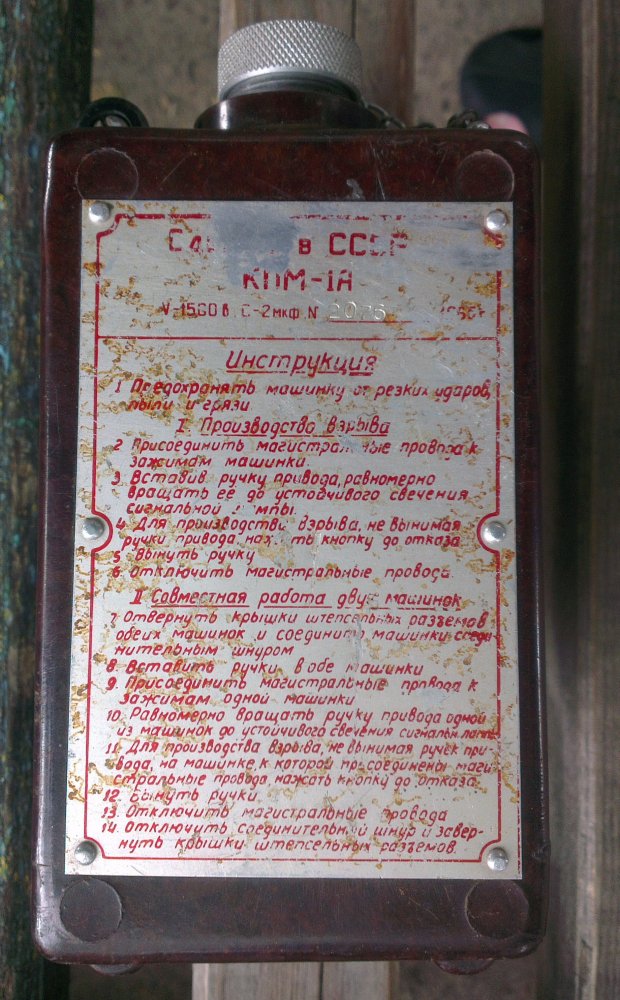 в СССР
КПМ-1А
V-1500 в. С-2 мкф. N
Инструкция
1 Предохранять машинку от резких ударов,
пыли и грязи
I Производство взрыва
2 Присоединить магистральные провода к
зажимам машинки.
3. Вставив ручку привода, равномерно
вращать ее до устойчивого свечения
сигнальной лампы.
4. Для производства взрыва, не вынимая
ручки привода, нажать кнопку до отказа
5 Вынуть ручку
6 Отключить магистральные провода.
II Совместная работа двух машинок
7 Отвернуть крышки штепсельных разъемов
обеих машинок и соединить машинки соеди-
нительным шнуром
8 Вставить ручки в обе машинки
9. Присоединить магистральные провода к
зажимам одной машинки
10. Равномерно вращать ручку привода одной
из машинок до устойчивого свечения сигнальн. лампы
11. Для производства взрыва, не вынимая ручек при-
вода, на машинке, к которой присоединены маги-
стральные провода, нажать кнопку до отказа.
12. Вынуть ручки.
13. Отключить магистральные провода
14. Отключить соединительный шнур и завер-
нуть крышки штепсельных разъемов